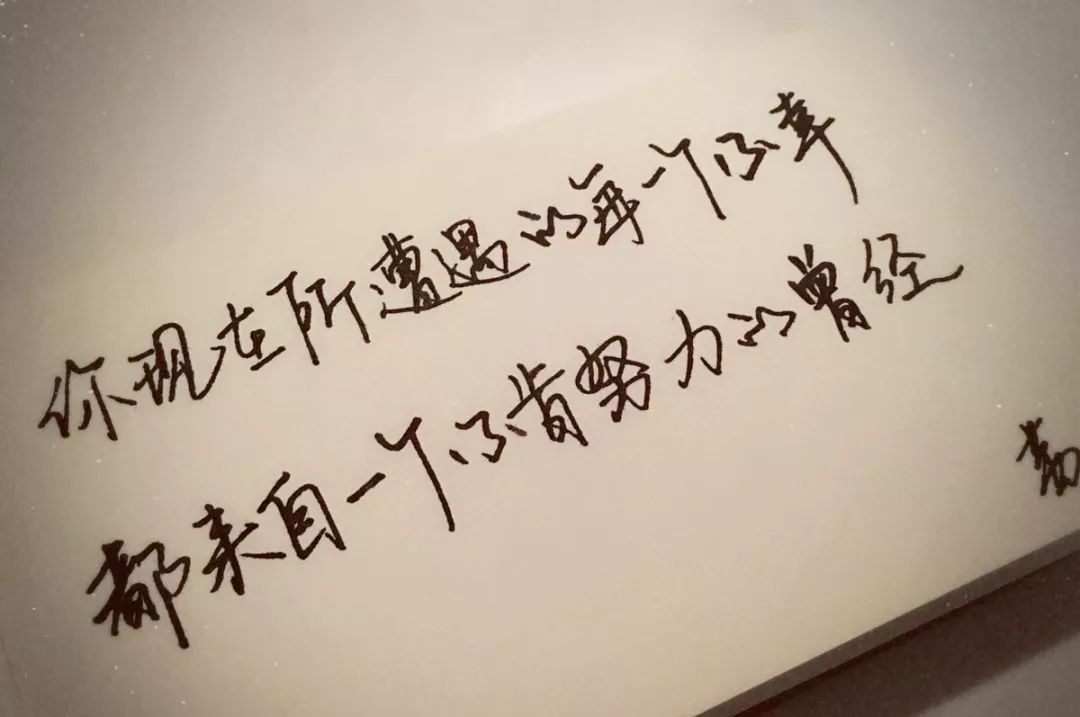 你现在所遭遇的每一个不幸
都来自一个不肯努力的曾经